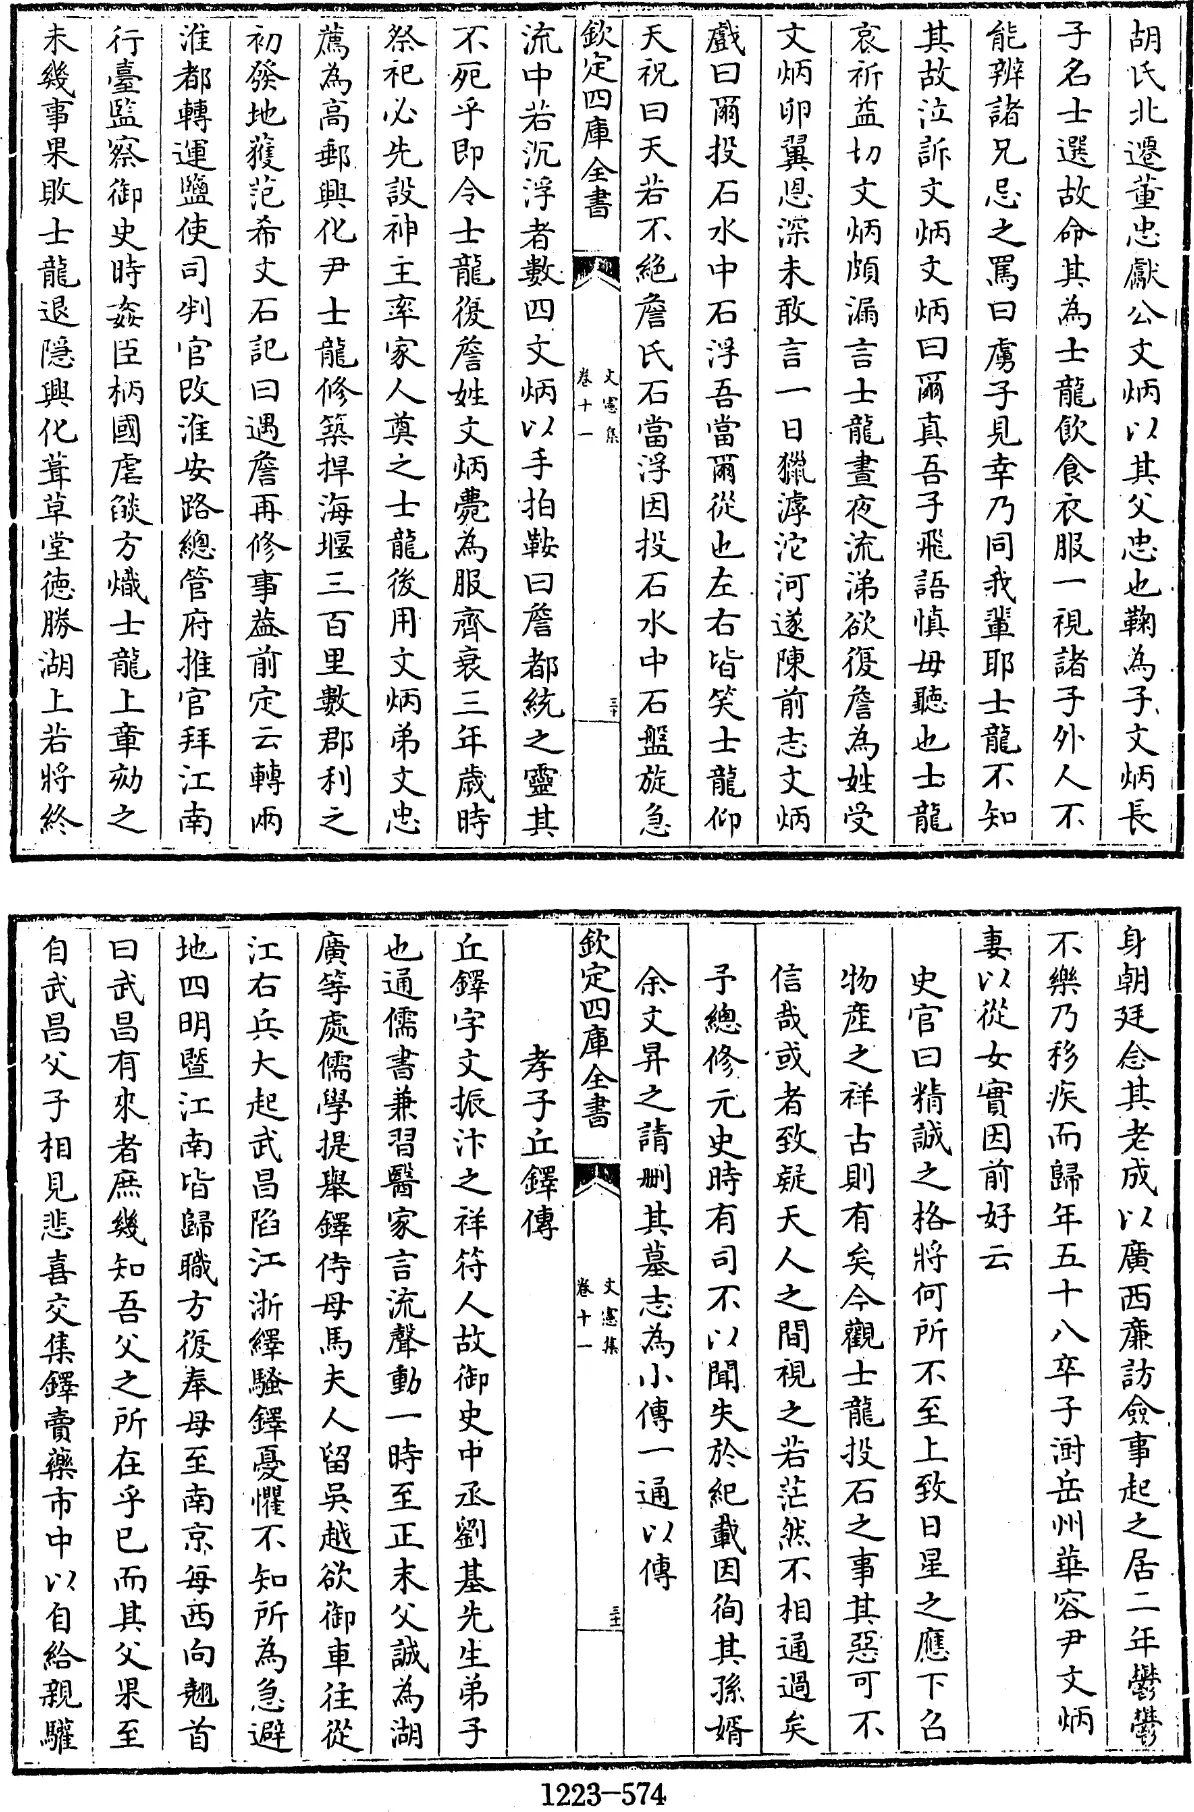 胡氏北遷董忠獻公文炳以其父忠也鞠為子文炳長
子名士選故命其為士龍飲食衣服一視諸子外人不
能辨諸兄忌之罵曰虜子見幸乃同我輩耶士龍不知
其故泣訴文炳文炳曰爾真吾子飛語慎毋聽也士龍
哀祈益切文炳頗漏言士龍晝夜流涕欲復詹為姓受
文炳卵翼恩深未敢言一日獵滹沱河遂陳前志文炳
戲曰爾投石水中石浮吾當爾從也左右皆笑士龍仰
天祝曰天若不絕詹氏石當浮因投石水中石盤旋急
欽定四庫全書
文憲集
卷十一
三十
流中若沉浮者數四文炳以手拍鞍曰詹都統之靈其
不死乎即令士龍復詹姓文炳薨為服齊衰三年歲時
祭祀必先設神主率家人奠之士龍後用文炳弟文忠
薦為高郵興化尹士龍修築捍海堰三百里數郡利之
初發地獲范希文石記曰遇詹再修事葢前定云轉兩
淮都轉運鹽使司判官改淮安路總管府推官拜江南
行臺監察御史時姦臣柄國虐燄方熾士龍上章劾之
未幾事果敗士龍退隱興化葺草堂德勝湖上若將終
身朝廷念其老成以廣西廉訪僉事起之居二年鬱鬱
不樂乃移疾而歸年五十八卒子澍岳州華容尹文炳
妻以從女實因前好云
史官曰精誠之格將何所不至上致日星之應下召
物產之祥古則有矣今觀士龍投石之事其惡可不
信哉或者致疑天人之間視之若茫然不相通過矣
予總修元史時有司不以聞失於紀載因徇其孫婿
余文昇之請刪其墓志為小傳一通以傳
欽定四庫全書
文憲集
卷十一
三十一
孝子丘鐸傳
丘鐸字文振汴之祥符人故御史中丞劉基先生弟子
也通儒書兼習醫家言流聲動一時至正末父誠為湖
廣等處儒學提舉鐸侍母馬夫人留吳越欲御車往從
江右兵大起武昌陷江浙繹騷鐸憂懼不知所為急避
地四明暨江南皆歸職方復奉母至南京每西向翹首
曰武昌有來者庶幾知吾父之所在乎已而其父果至
自武昌父子相見悲喜交集鐸賣藥市中以自給親驩
1223-574